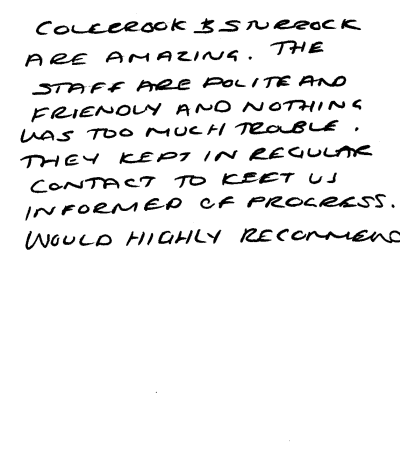 COLEBROOK & STURROCK
ARE AMAZING. THE
STAFF ARE POLITE AND
FRIENDLY AND NOTHING
WAS TOO MUCH TROUBLE.
THEY KEPT IN REGULAR
CONTACT TO KEET US
INFORMED OF PROGRESS.
WOULD HIGHLY RECOMMEND